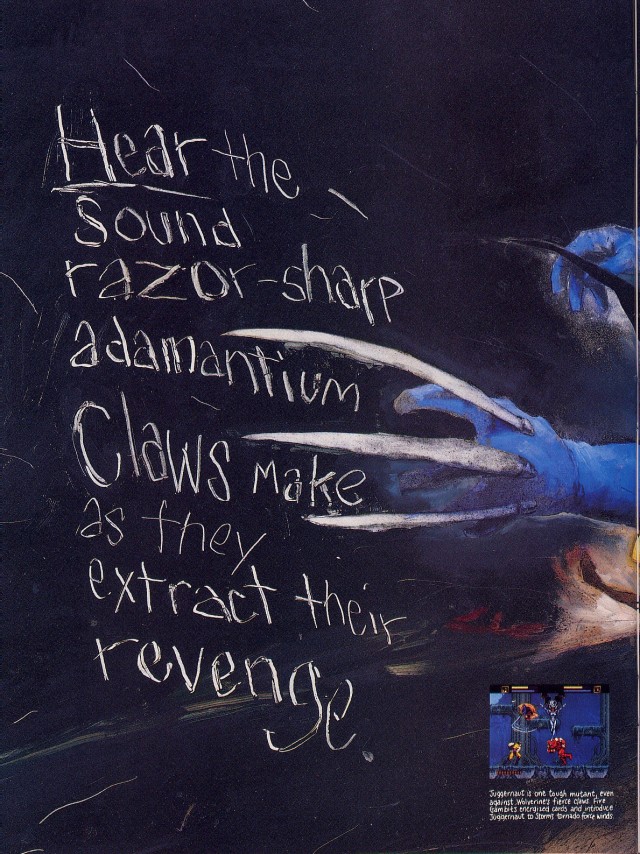 Hear the
Sound
razor-sharp
adamantium
Claws Make
as they
extract their
revenge.
Juggernaut is one tough mutant, even
against Wolverine's fierce claws. Fire
Gambit's energized cards and introduce
Juggernaut to Storm's tornado force winds.